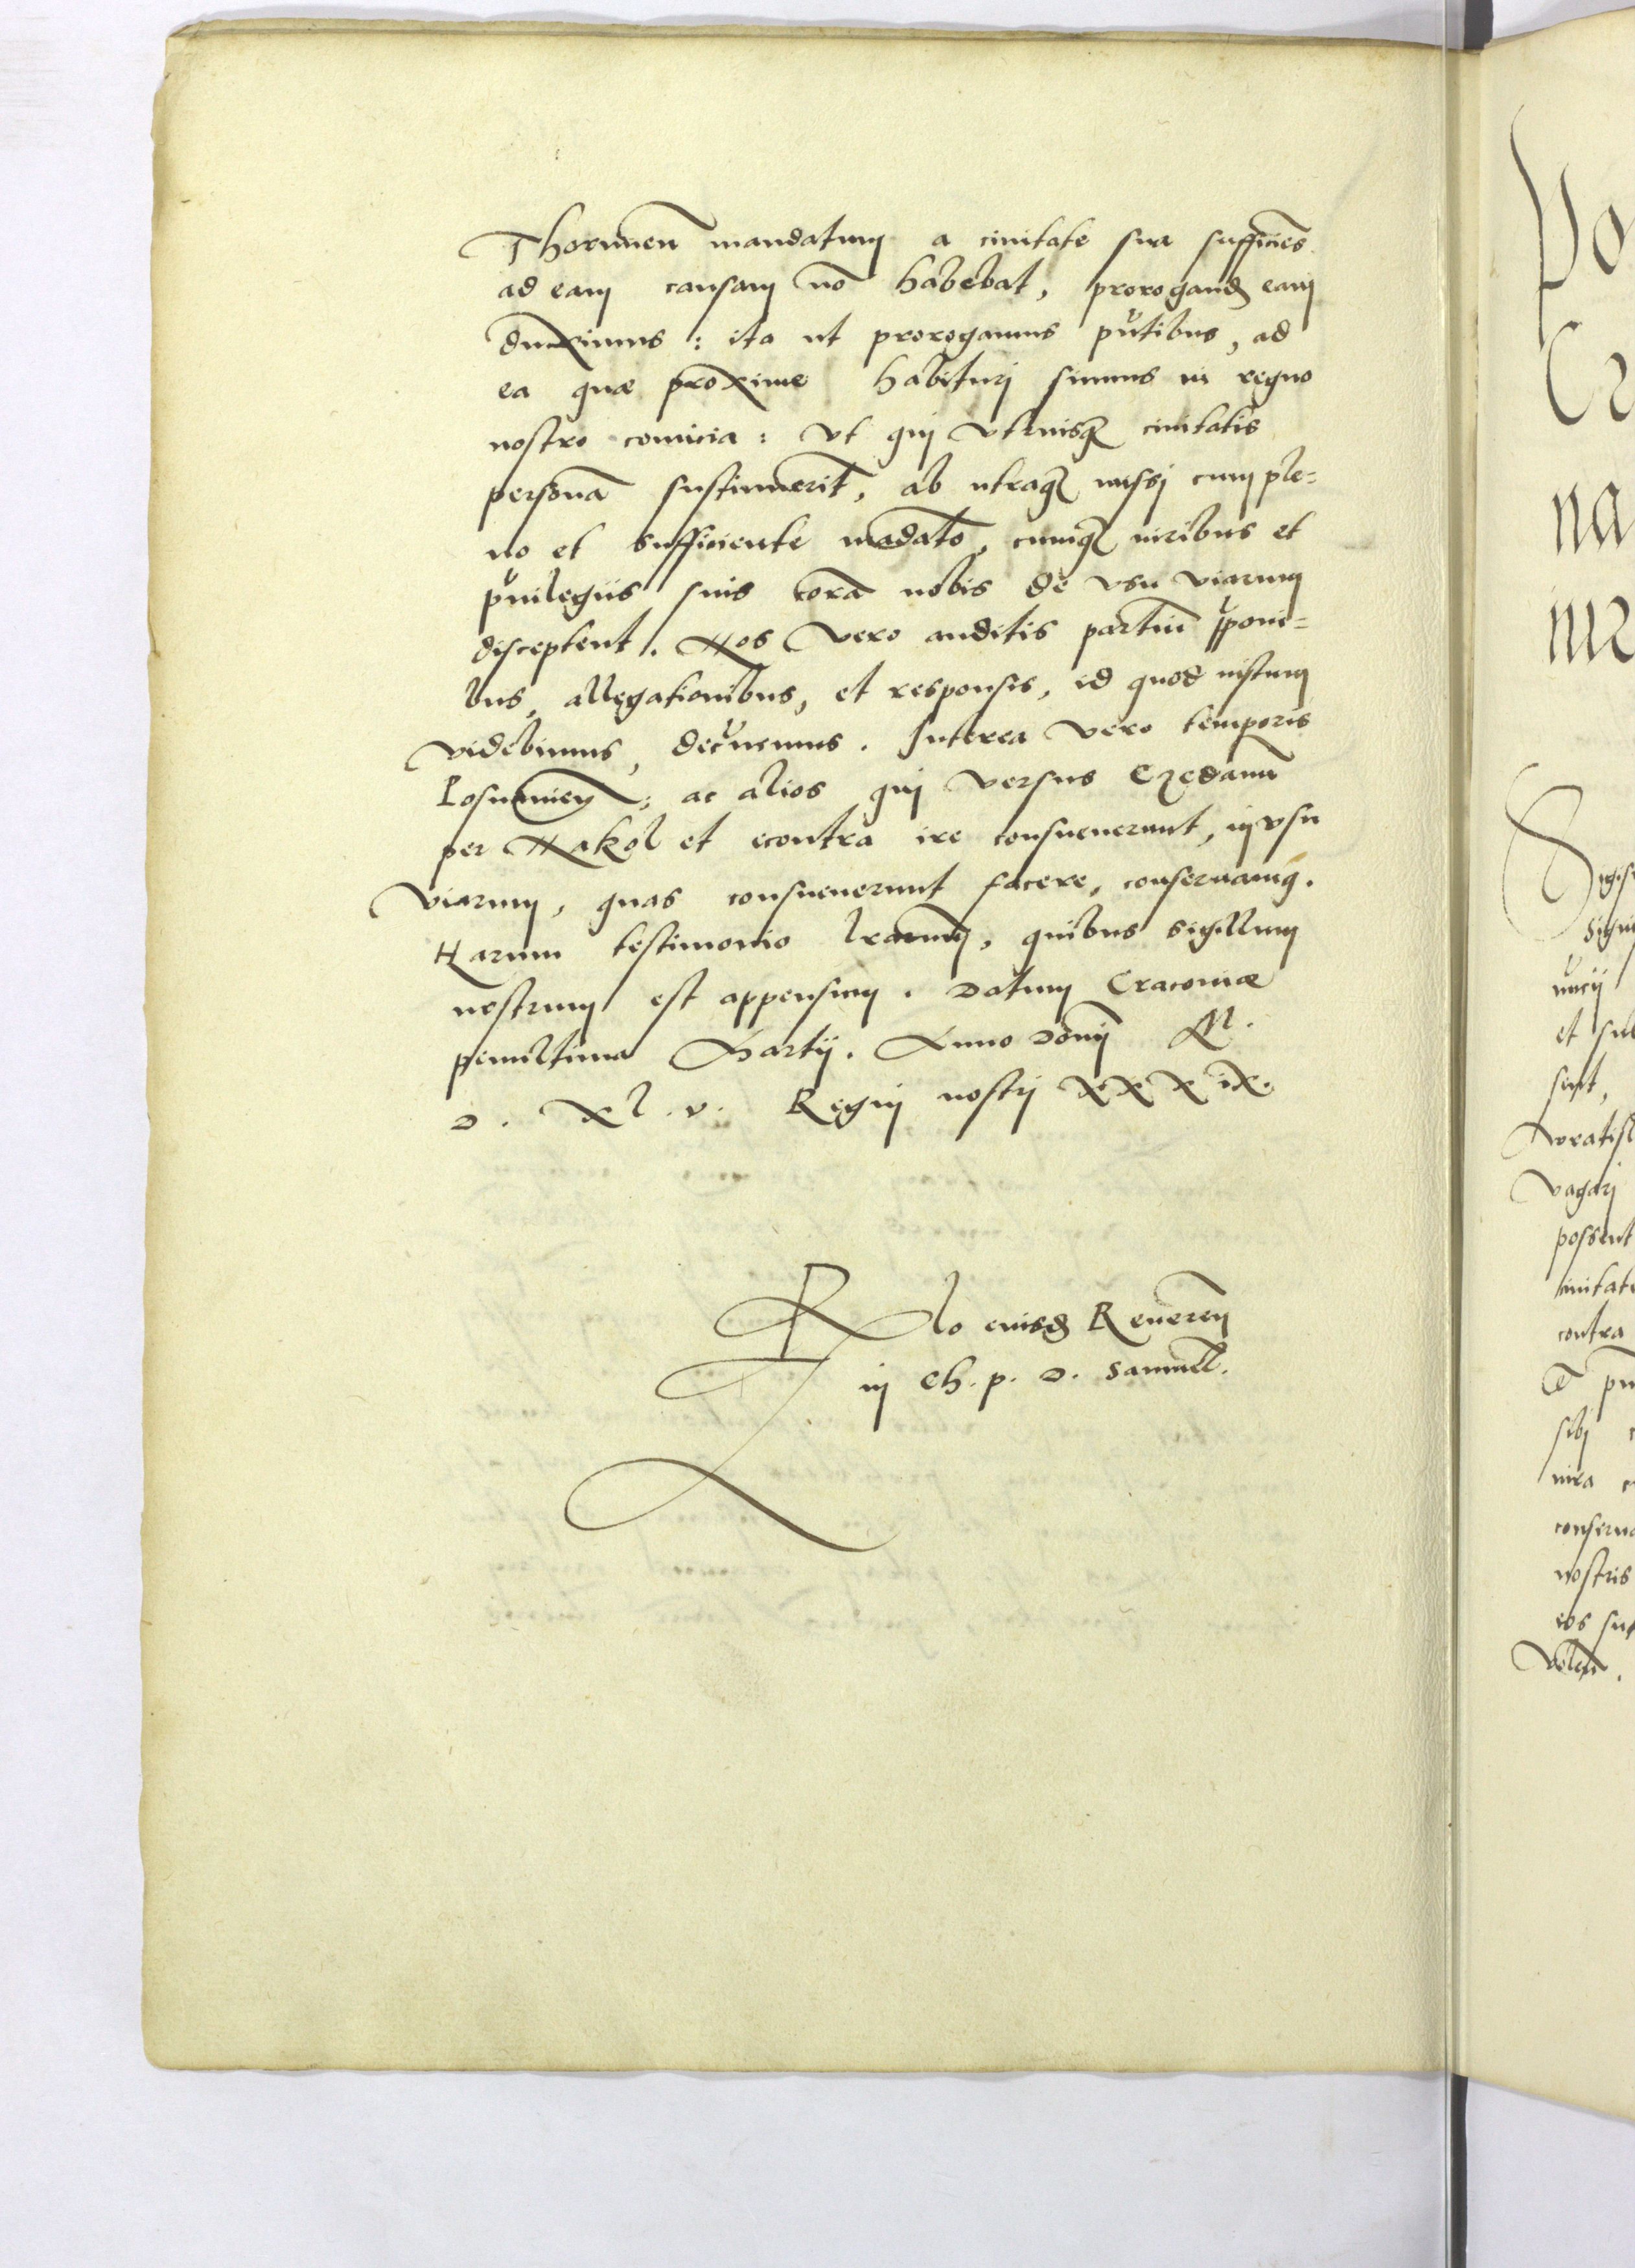 Thorunien mandatum a ciuitate sua sufficiēs
ad eam causam nō habebat, prorogand eam
duximus: ita ut prorogamus pntibus, ad
ea quæ proxime habituri sumus in regno
nostro comicia: Vt qui vtriusq ciuitatis
personā sustinuerīt, ab utraq missi cum ple=
no et sufficiente mādato, cumq iuribus et
priuilegiis suis corā nobis de vsu viarum
disceptent. Nos vero auditis partiū proponi=
bus, allegationibus, et responsis, id quod iustum
videbimus, decernemus. Interea vero temporis
Posnanien: ac alios qui versus Gedanū
per Nakel et econtra ire consueuerunt, in vsu
viarum, quas consueuerunt facere, conseruamq.
Harum testimonio lrarum, quibus sigillum
nostrum est appensum. Datum Cracouiæ
penultima Martij. Anno Domi M.
D. XL.V. Regni nostri XXXIX.
Rlo eiusd Reueren
in Ch. p. D. Samuel.
Po
Cr
na
Sigis
signi
nucij
et sub
sint,
Wratisl
vagari
possent
ciuitate
contra
sibi
conserua
nostris
eos sub
Volen.